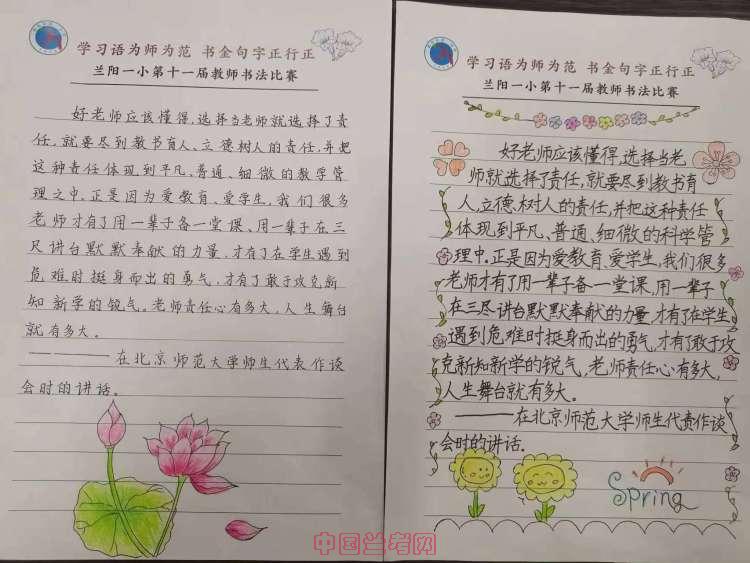 学习语为师为范 书金句字正行正
兰阳一小第十一届教师书法比赛
好老师应该懂得,选择当老师就选择了责
任,就要尽到教书育人、立德树人的责任,并把
这种责任体现到平凡、普通、细微的教学管
理之中。正是因为爱教育、爱学生,我们很多
老师才有了用一辈子备一堂课、用一辈子在三
尺讲台默默奉献的力量,才有了在学生遇到
危难时挺身而出的勇气,才有了敢于攻克新
知新学的锐气。老师责任心有多大,人生舞台
就有多大。
————在北京师范大学师生代表作谈
会时的讲话。
学习语为师为范 书金句字正行正
兰阳一小第十一届教师书法比赛
好老师应该懂得,选择当老
师就选择了责任,就要尽到教书育
人,立德树人的责任,并把这种责任
体现到平凡、普通、细微的科学管
理中。正是因为爱教育、爱学生,我们很多
老师才有了用一辈子备一堂课,用一辈子
在三尺讲台默默奉献的力量,才有了在学生
遇到危难时挺身而出的勇气,才有了敢于攻
克新知新学的锐气,老师责任心有多大,
人生舞台就有多大。
————在北京师范大学师生代表作谈
会时的讲话.
Spring
中国兰考网